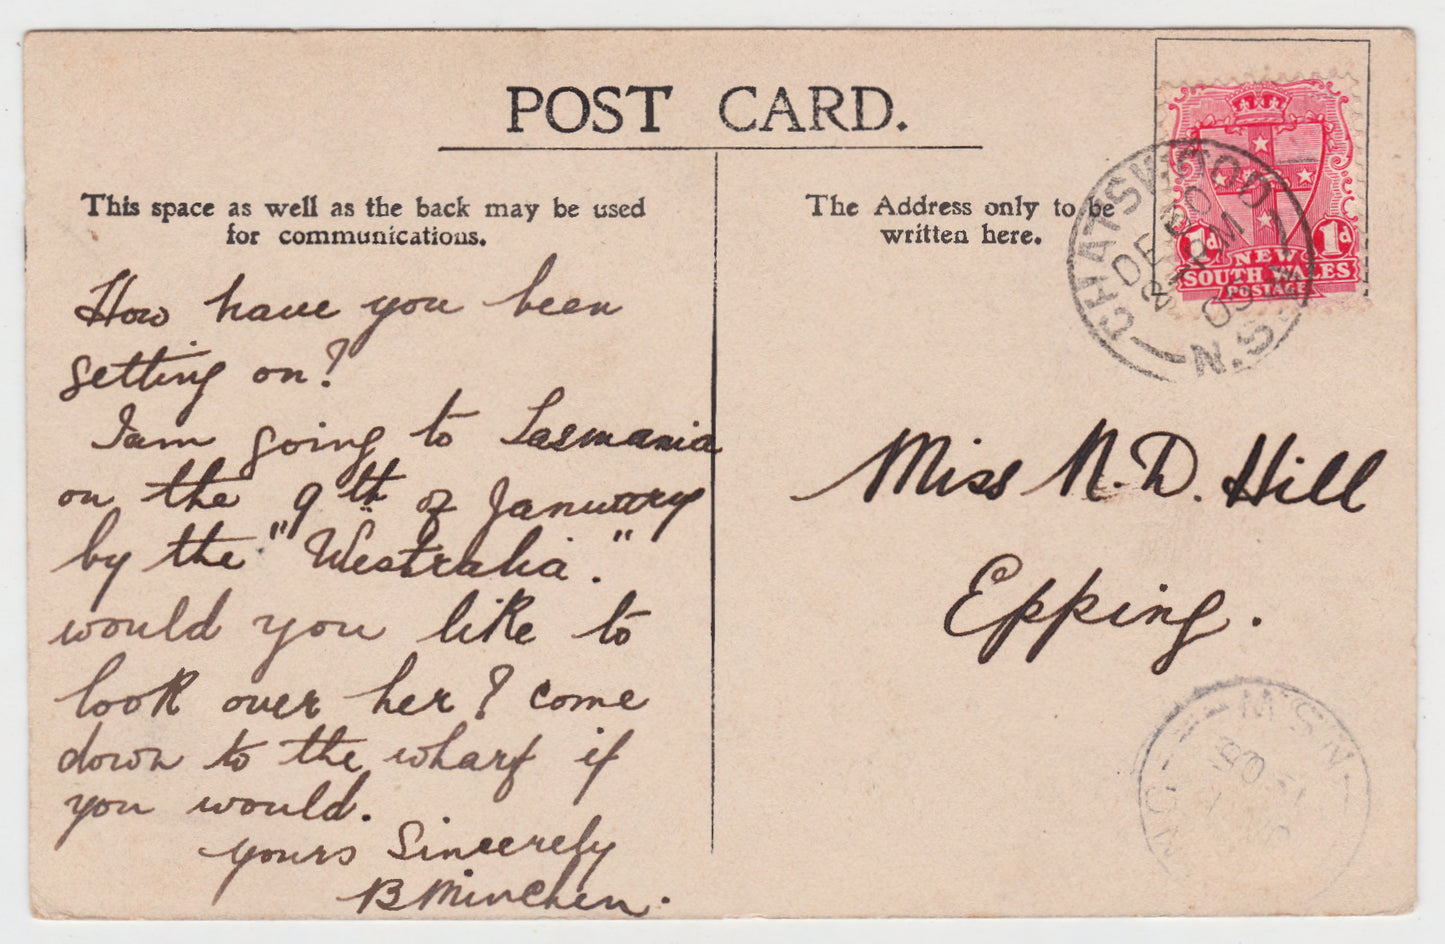 POST CARD.
This space as well as the back may be used
for communications.
The Address only to be
written here.
How have you been
getting on?
I am going to Tasmania
on the 9th of January
by the "Westralia."
would you like to
look over her? come
down to the wharf if
you would.
yours Sincerely
B Minchen.
Miss N. D. Hill
Epping.
1d 1d
NEW
SOUTH WALES
POSTAGE
CHATSWOOD
DE 20
PM
05
N.S.W
N.S.W